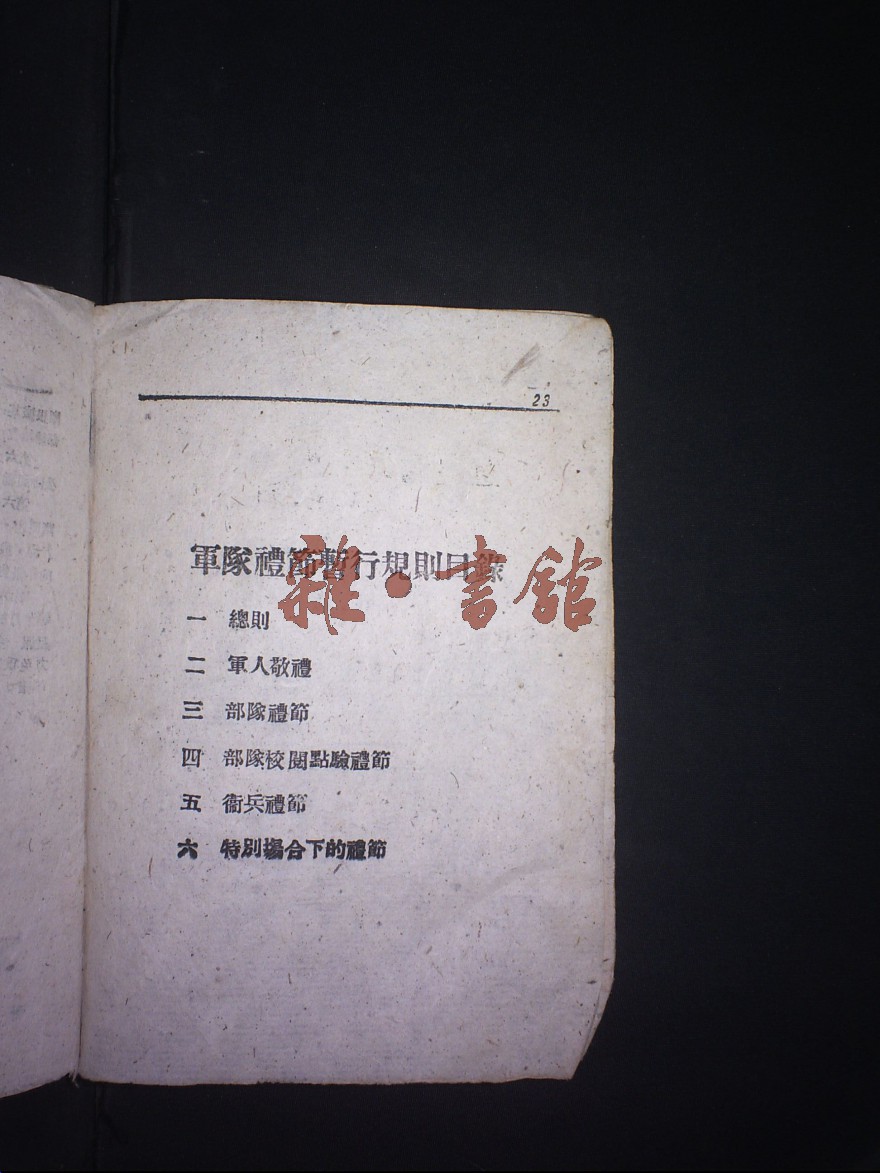 23
軍隊禮節暫行規則目錄
雜·書館
一 總則
二 軍人敬禮
三 部隊禮節
四 部隊校閱點驗禮節
五 衞兵禮節
六 特別場合下的禮節